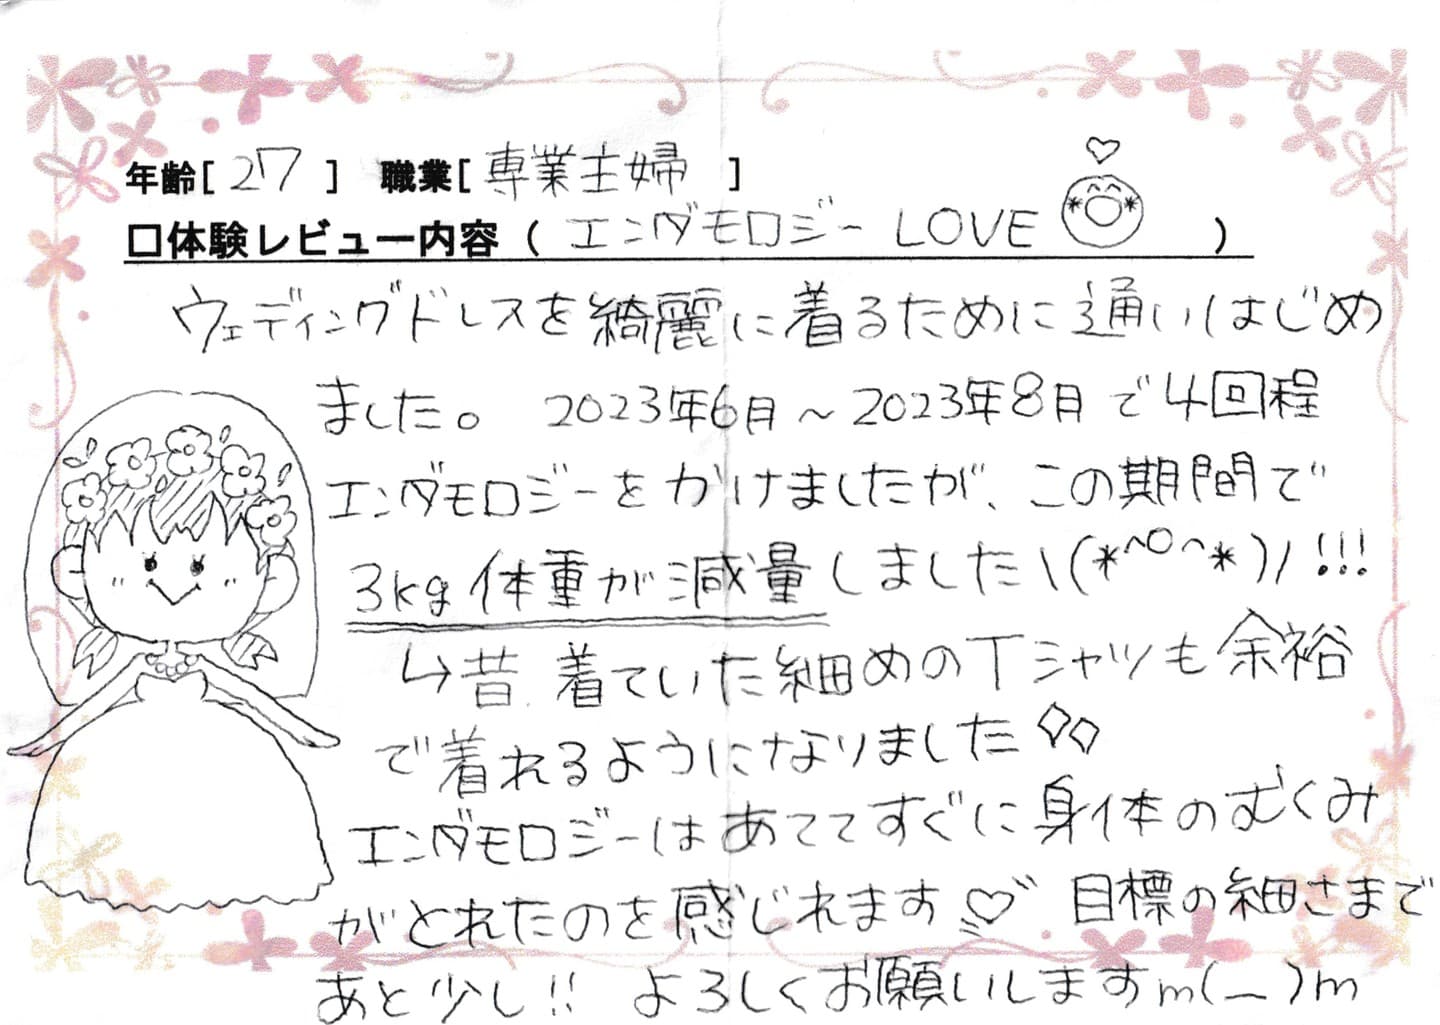 年齢[ 27 ] 職業[ 専業主婦 ]
□体験レビュー内容 ( エンダモロジー LOVE )
ウェディングドレスを綺麗に着るために通いはじめ
ました。 2023年6月～2023年8月で4回程
エンダモロジーをかけましたが、この期間で
3kg体重が減量しました\(*^O^*)/!!!
↳昔、着ていた細めのTシャツも余裕
で着れるようになりました◇◇
エンダモロジーはあててすぐに身体のむくみ
がとれたのを感じれます♡ 目標の細さまで
あと少し!! よろしくお願いしますm(_)m